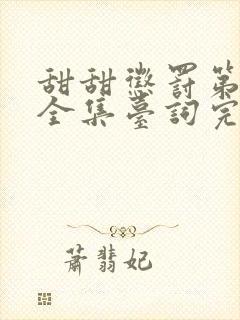 甜甜懲罰第
全集臺詞完
蕭翡妃